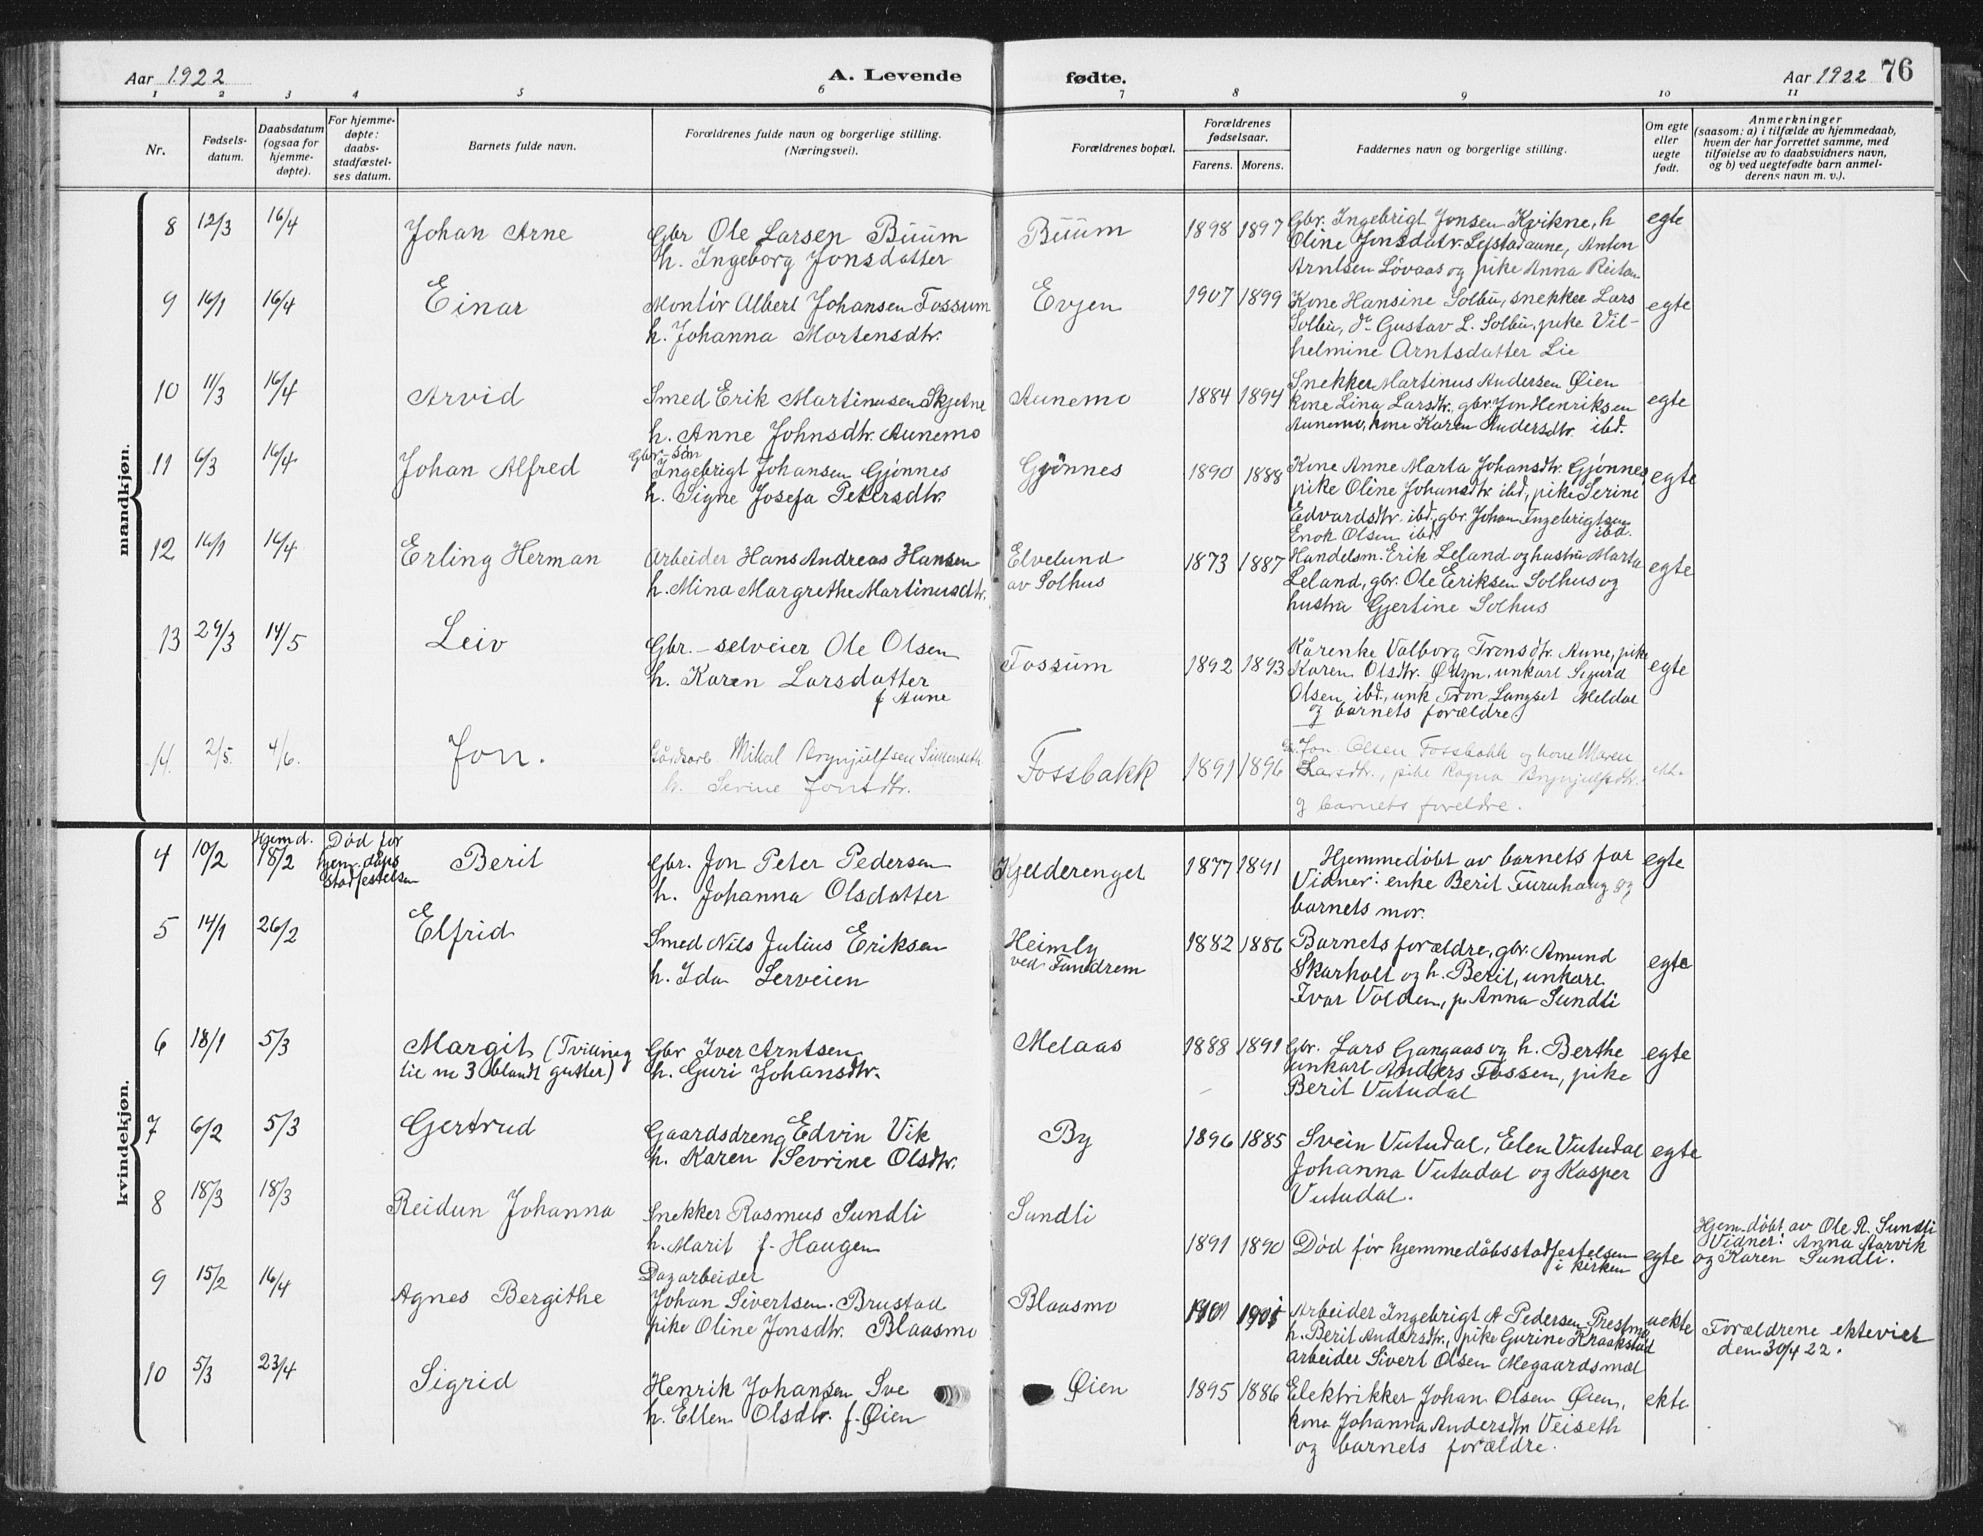 Aar 1922 A. Levende fødte. Aar 1922 76
1 2 3 4 5 6 7 8 9 10 11
Nr. Fødsels-datum. Daabsdatum (ogsaa for hjemme-døpte). For hjemme-døpte: daabs-stadfæstel-ses datum. Barnets fulde navn. Forældrenes fulde navn og borgerlige stilling. (Næringsvei). Forældrenes bopæl. Forældrenes fødselsaar. Farens. Morens. Faddernes navn og borgerlige stilling. Om egte eller uegte født. Anmerkninger (saasom: a) i tilfælde av hjemmedaab, hvem der har forrettet samme, med tilføielse av to daabsvidners navn, og b) ved uegtefødte barn anmel-derens navn m. v.).
mandkjøn.
8 12/3 16/4 Johan Arne Gbr Ole Larsen Buum Buum 1898 1897 Gbr. Ingebrigt Jonsen Kvikne, h egte
h. Ingeborg Jonsdatter Oline Jonsdatr. Lefstadaune, Anton
Arntsen Løvaas og pike Anna Reitan
9 16/1 16/4 Einar Montør Albert Johansen Fossum Evjen 1907 1899 Kone Hansine Solbu, snekker Lars egte
h. Johanna Mortensdtr. Solbu, do Gustav L. Solbu, pike Vil-
helmine Arntsdatter Lie
10 11/3 16/4 Arvid Smed Erik Martinusen Skjetne Aunemo 1884 1894 Snekker Martinus Andersen Øien egte
h. Anne Johnsdtr. Aunemo kone Lina Larsdtr., gbr. Jon Henriksen
Aunemo, kone Karen Andersdtr. ibd.
11 6/3 16/4 Johan Alfred Gbr-søn
Ingebrigt Johansen Gjønnes Gjønnes 1890 1888 Kone Anne Marta Johansdtr. Gjønnes, egte
h. Signe Josefa Petersdtr. pike Oline Johansdtr ibd, pike Serine
Edvardsdtr. ibd., gbr. Johan Ingebrigtsen ibd.
Enok Olsen ibd.
12 16/1 16/4 Erling Herman Arbeider Hans Andreas Hansen Elvelund 1873 1887 Handelsm. Erik Leland og hustru Marta egte
h. Mina Margrethe Martinusdtr. av Solhus Leland, gbr. Ole Eriksen Solhus og
hustru Gjertine Solhus
13 29/3 14/5 Leiv Gbr.-selveier Ole Olsen Fossum 1892 1893 Kårenke Valborg Tronsdtr. Aune, pike egte
h. Karen Larsdatter Karen Olsdtr. unkarl Sigurd
f Aune Olsen ibd., unk Tron Langset Meldal
og barnets forældre
14. 2/5. 4/6. Jon. Gårdsarb. Mikal Brynjulfsen Fossbakk 1891 1896 Jon Olsen Fossbakk og kone Maren ekt.
h. Serine Jonsdtr. Larsdtr., pike Ragna Brynjulfsdtr.
og barnets foreldre.
kvindekjøn.
4 10/2 Hjemd. 18/2 Død før hjem.daps stadfestelsen Berit Gbr. Jon Peter Pedersen Kjelderenget 1877 1891 Hjemmedøbt av barnets far egte
h. Johanna Olsdatter Vidner: enke Berit Furuhaug og
barnets mor.
5 14/1 26/2 Elfrid Smed Nils Julius Eriksen Heimly 1882 1886 Barnets forældre, gbr. Amund egte
h. Ida Serveien ved Fandrem Skarholt og h. Berit, unkare
Ivar Volden, p. Anna Sundli
6 18/1 5/3 Margit (Tvilling Gbr Iver Arntsen Melaas 1888 1891 Gbr. Lars Gangaas og h. Berthe egte
til nr 3 blandt gutter) h. Guri Johansdtr. unkarl Anders Fossen, pike
Berit Vutudal
7 6/2 5/3 Gertrud Gaardsdreng Edvin Vik By 1896 1885 Svein Vutudal, Elen Vutudal egte
h. Karen Sevrine Olsdtr. Johanna Vutudal og Kasper
Vutudal.
8 18/3 18/3 Reidun Johanna Snekker Rasmus Sundli Sundli
h. Marit f. Haugen 1891 1890 Død før hjemmedåbsstadfestelsen i kirken egte Hjem.døbt av Ole R. Sundli
Vidner: Anna Aarvik
og Karen Sundli.
9 15/2 16/4 Agnes Bergithe Dagarbeider
Johan Sivertsen Brustad Blaasmo 1901 1901 Arbeider Ingebrigt A Pedersen Prestmo uekte Forældrene ekteviet
pike Oline Jonsdtr. Blaasmo h. Berit Andersdtr., pike Gurine Kraakstad den 30/4 22.
arbeider Sivert Olsen Megaardsmæl
10 5/3 23/4 Sigrid Henrik Johansen Sve Øien 1895 1886 Elektrikker Johan Olsen Øien, ekte
h. Ellen Olsdtr. f. Øien kone Johanna Andersdtr Veiseth
og barnets forældre.